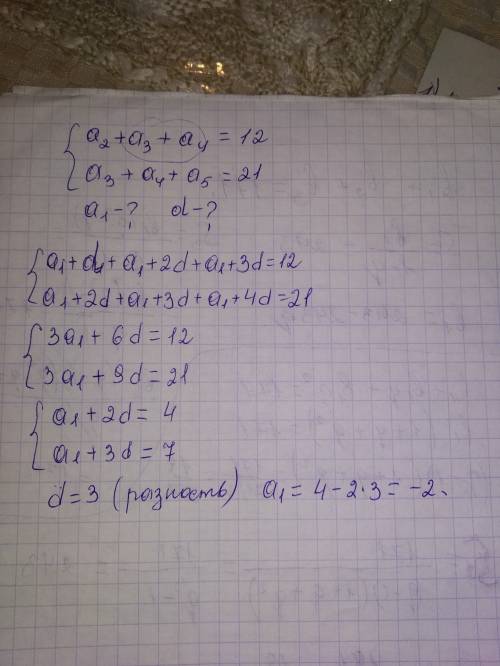 { a₂ + a₃ + a₄ = 12
a₃ + a₄ + a₅ = 21
a₁ - ? d - ?
{ a₁ + d + a₁ + 2d + a₁ + 3d = 12
a₁ + 2d + a₁ + 3d + a₁ + 4d = 21
{ 3a₁ + 6d = 12
3a₁ + 9d = 21
{ a₁ + 2d = 4
a₁ + 3d = 7
d = 3 (разность) a₁ = 4 - 2·3 = -2.